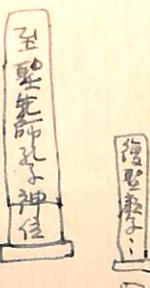 至聖先師孔子神位
復聖